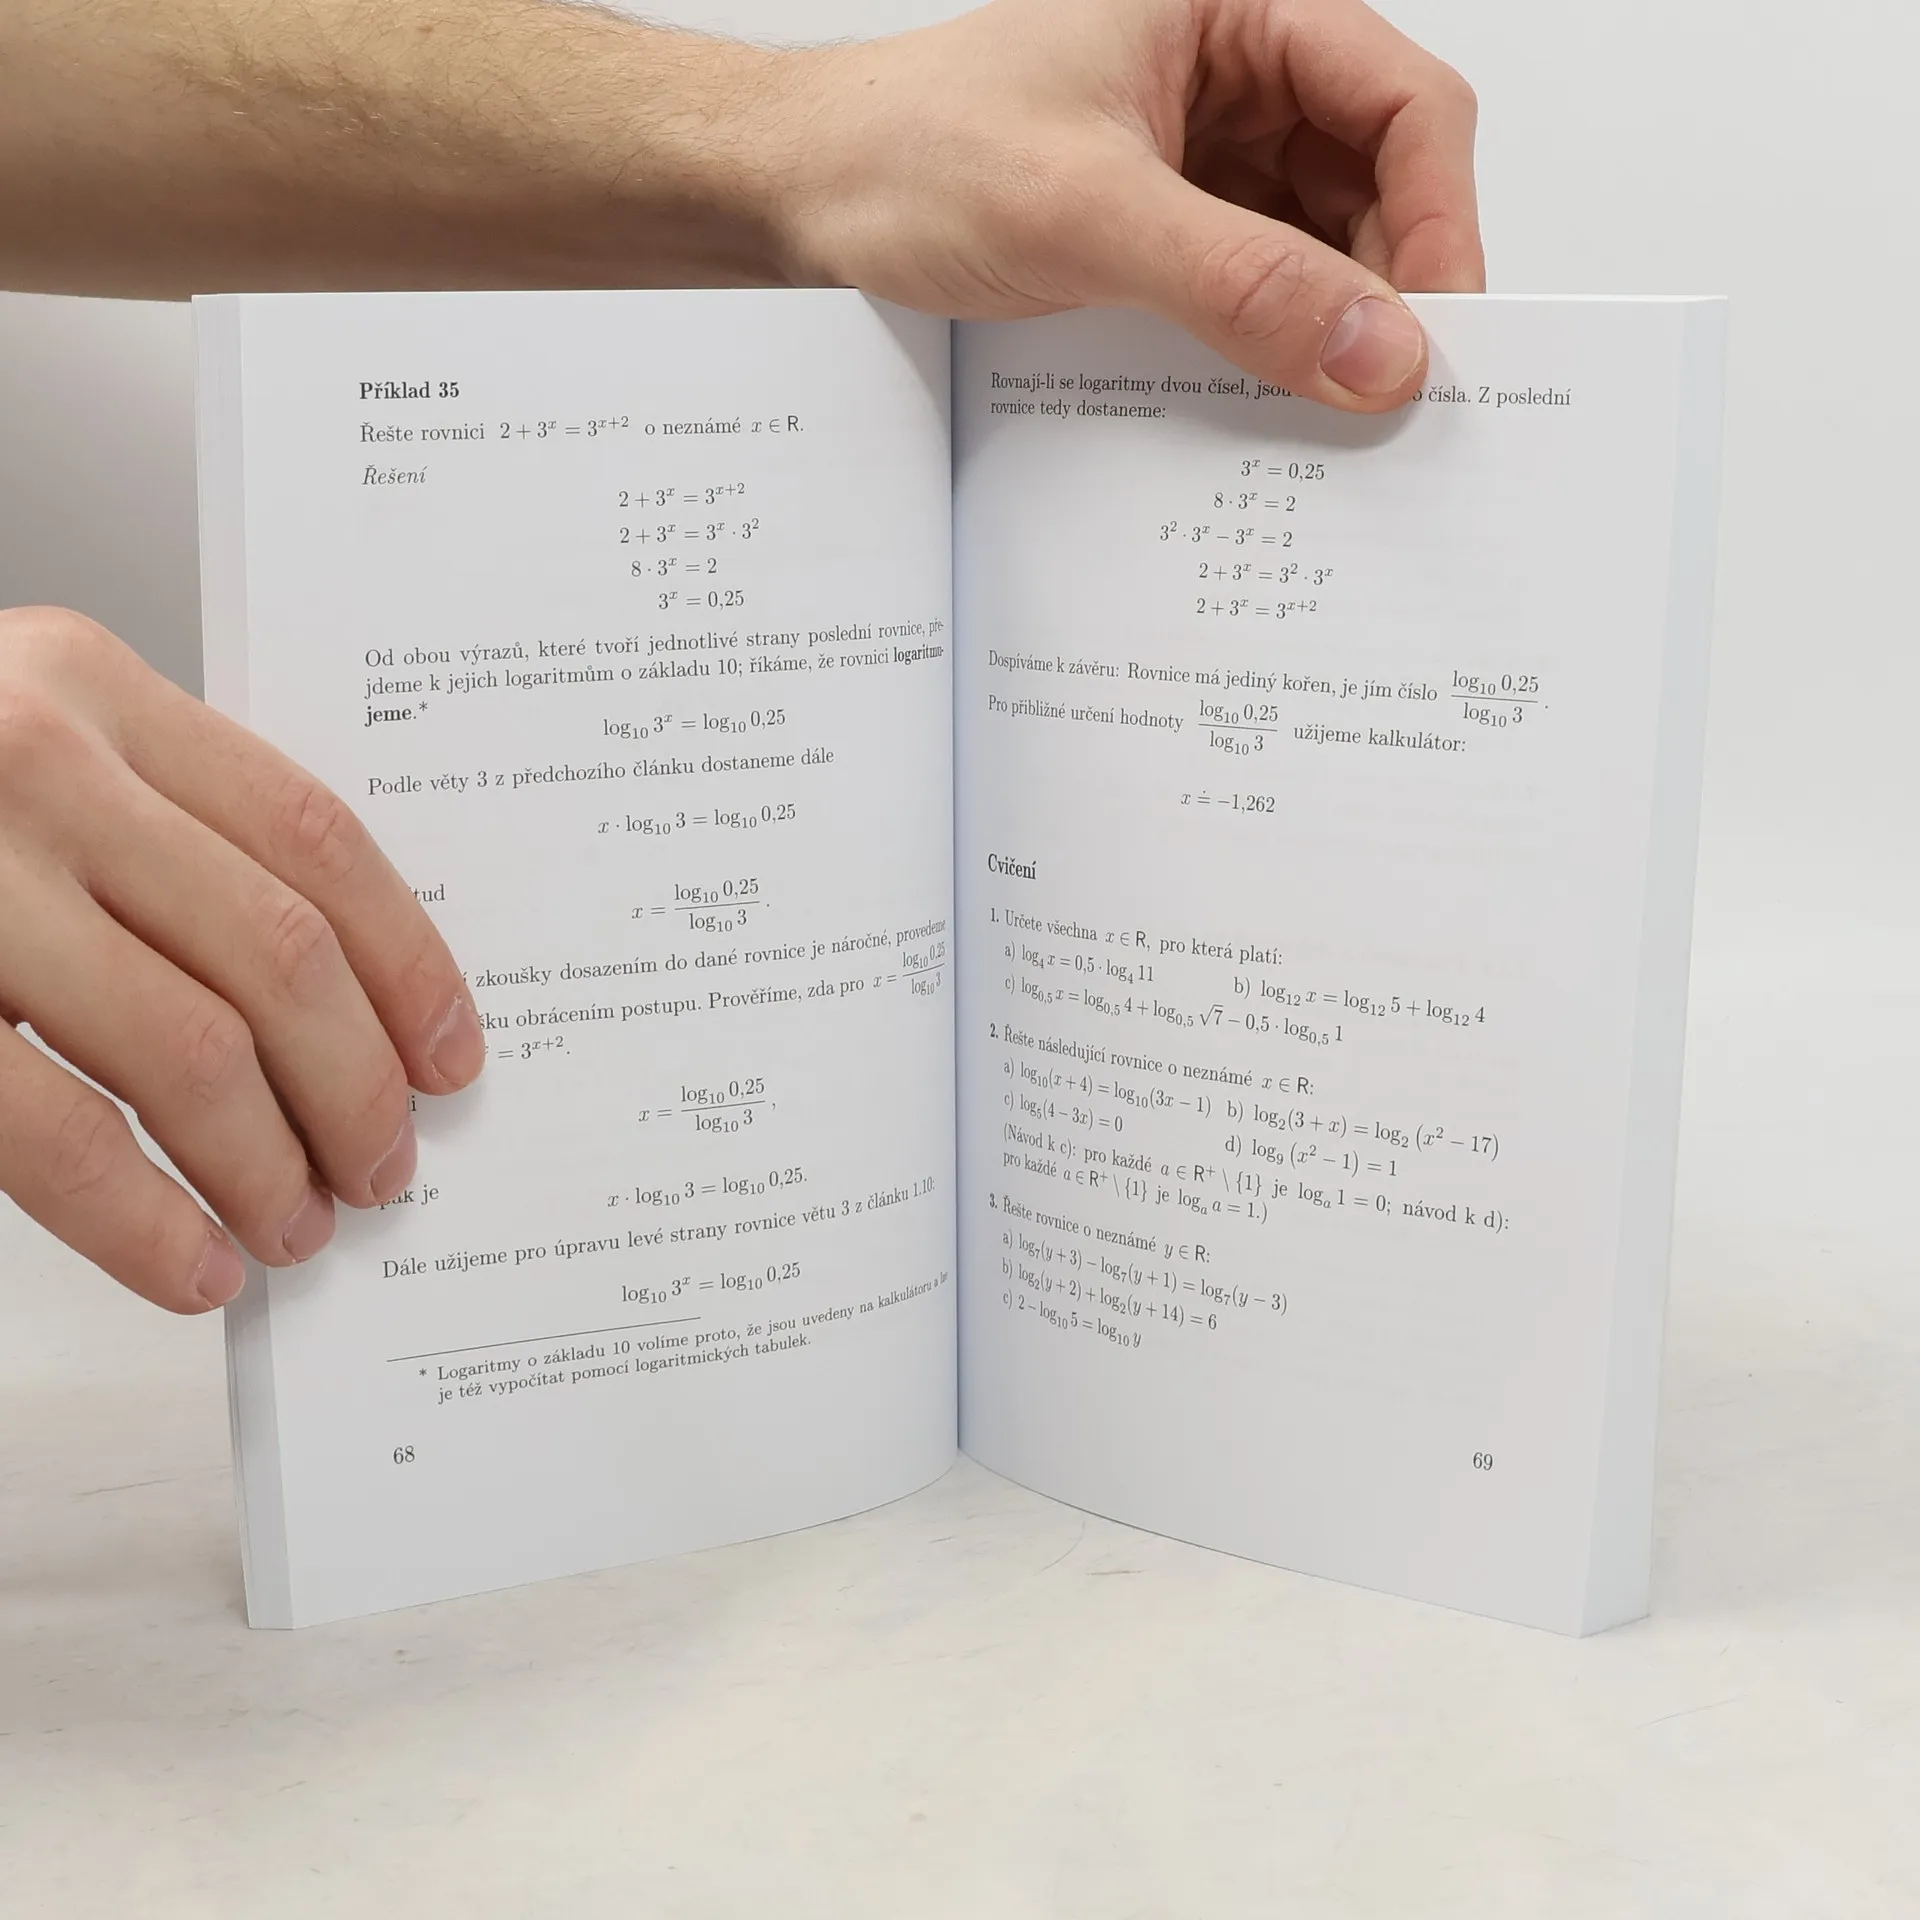 Příklad 35
Řešte rovnici 2 + 3^x = 3^{x+2} o neznámé x ∈ R.
Řešení
2 + 3^x = 3^{x+2}
2 + 3^x = 3^x · 3^2
8 · 3^x = 2
3^x = 0,25
Od obou výrazů, které tvoří jednotlivé strany poslední rovnice, pře-
jdeme k jejich logaritmům o základu 10; říkáme, že rovnici logaritmu-
jeme.*
log_{10} 3^x = log_{10} 0,25
Podle věty 3 z předchozího článku dostaneme dále
x · log_{10} 3 = log_{10} 0,25
x = \frac{log_{10} 0,25}{log_{10} 3}.
zkoušky dosazením do dané rovnice je náročné, provedeme
obrácením postupu. Prověříme, zda pro x = \frac{log_{10} 0,25}{log_{10} 3}
= 3^{x+2}.
x = \frac{log_{10} 0,25}{log_{10} 3},
je
x · log_{10} 3 = log_{10} 0,25.
Dále užijeme pro úpravu levé strany rovnice větu 3 z článku 1.10:
log_{10} 3^x = log_{10} 0,25
* Logaritmy o základu 10 volíme proto, že jsou uvedeny na kalkulátoru a
je též vypočítat pomocí logaritmických tabulek.
68
Rovnají-li se logaritmy dvou čísel, čísla. Z poslední
rovnice tedy dostaneme:
3^x = 0,25
8 · 3^x = 2
3^2 · 3^x − 3^x = 2
2 + 3^x = 3^2 · 3^x
2 + 3^x = 3^{x+2}
Dospíváme k závěru: Rovnice má jediný kořen, je jím číslo \frac{log_{10} 0,25}{log_{10} 3}.
Pro přibližné určení hodnoty \frac{log_{10} 0,25}{log_{10} 3} užijeme kalkulátor:
x ≐ −1,262
Cvičení
1. Určete všechna x ∈ R, pro která platí:
a) log_4 x = 0,5 · log_4 11 b) log_{12} x = log_{12} 5 + log_{12} 4
c) log_{0,5} x = log_{0,5} 4 + log_{0,5} √7 − 0,5 · log_{0,5} 1
2. Řešte následující rovnice o neznámé x ∈ R:
a) log_{10}(x + 4) = log_{10}(3x − 1) b) log_2(3 + x) = log_2 (x^2 − 17)
c) log_5(4 − 3x) = 0 d) log_9 (x^2 − 1) = 1
(Návod k c): pro každé a ∈ R^+ \ {1} je log_a 1 = 0; návod k d):
pro každé a ∈ R^+ \ {1} je log_a a = 1.)
3. Řešte rovnice o neznámé y ∈ R:
a) log_7(y + 3) − log_7(y + 1) = log_7(y − 3)
b) log_2(y + 2) + log_2(y + 14) = 6
c) 2 − log_{10} 5 = log_{10} y
69